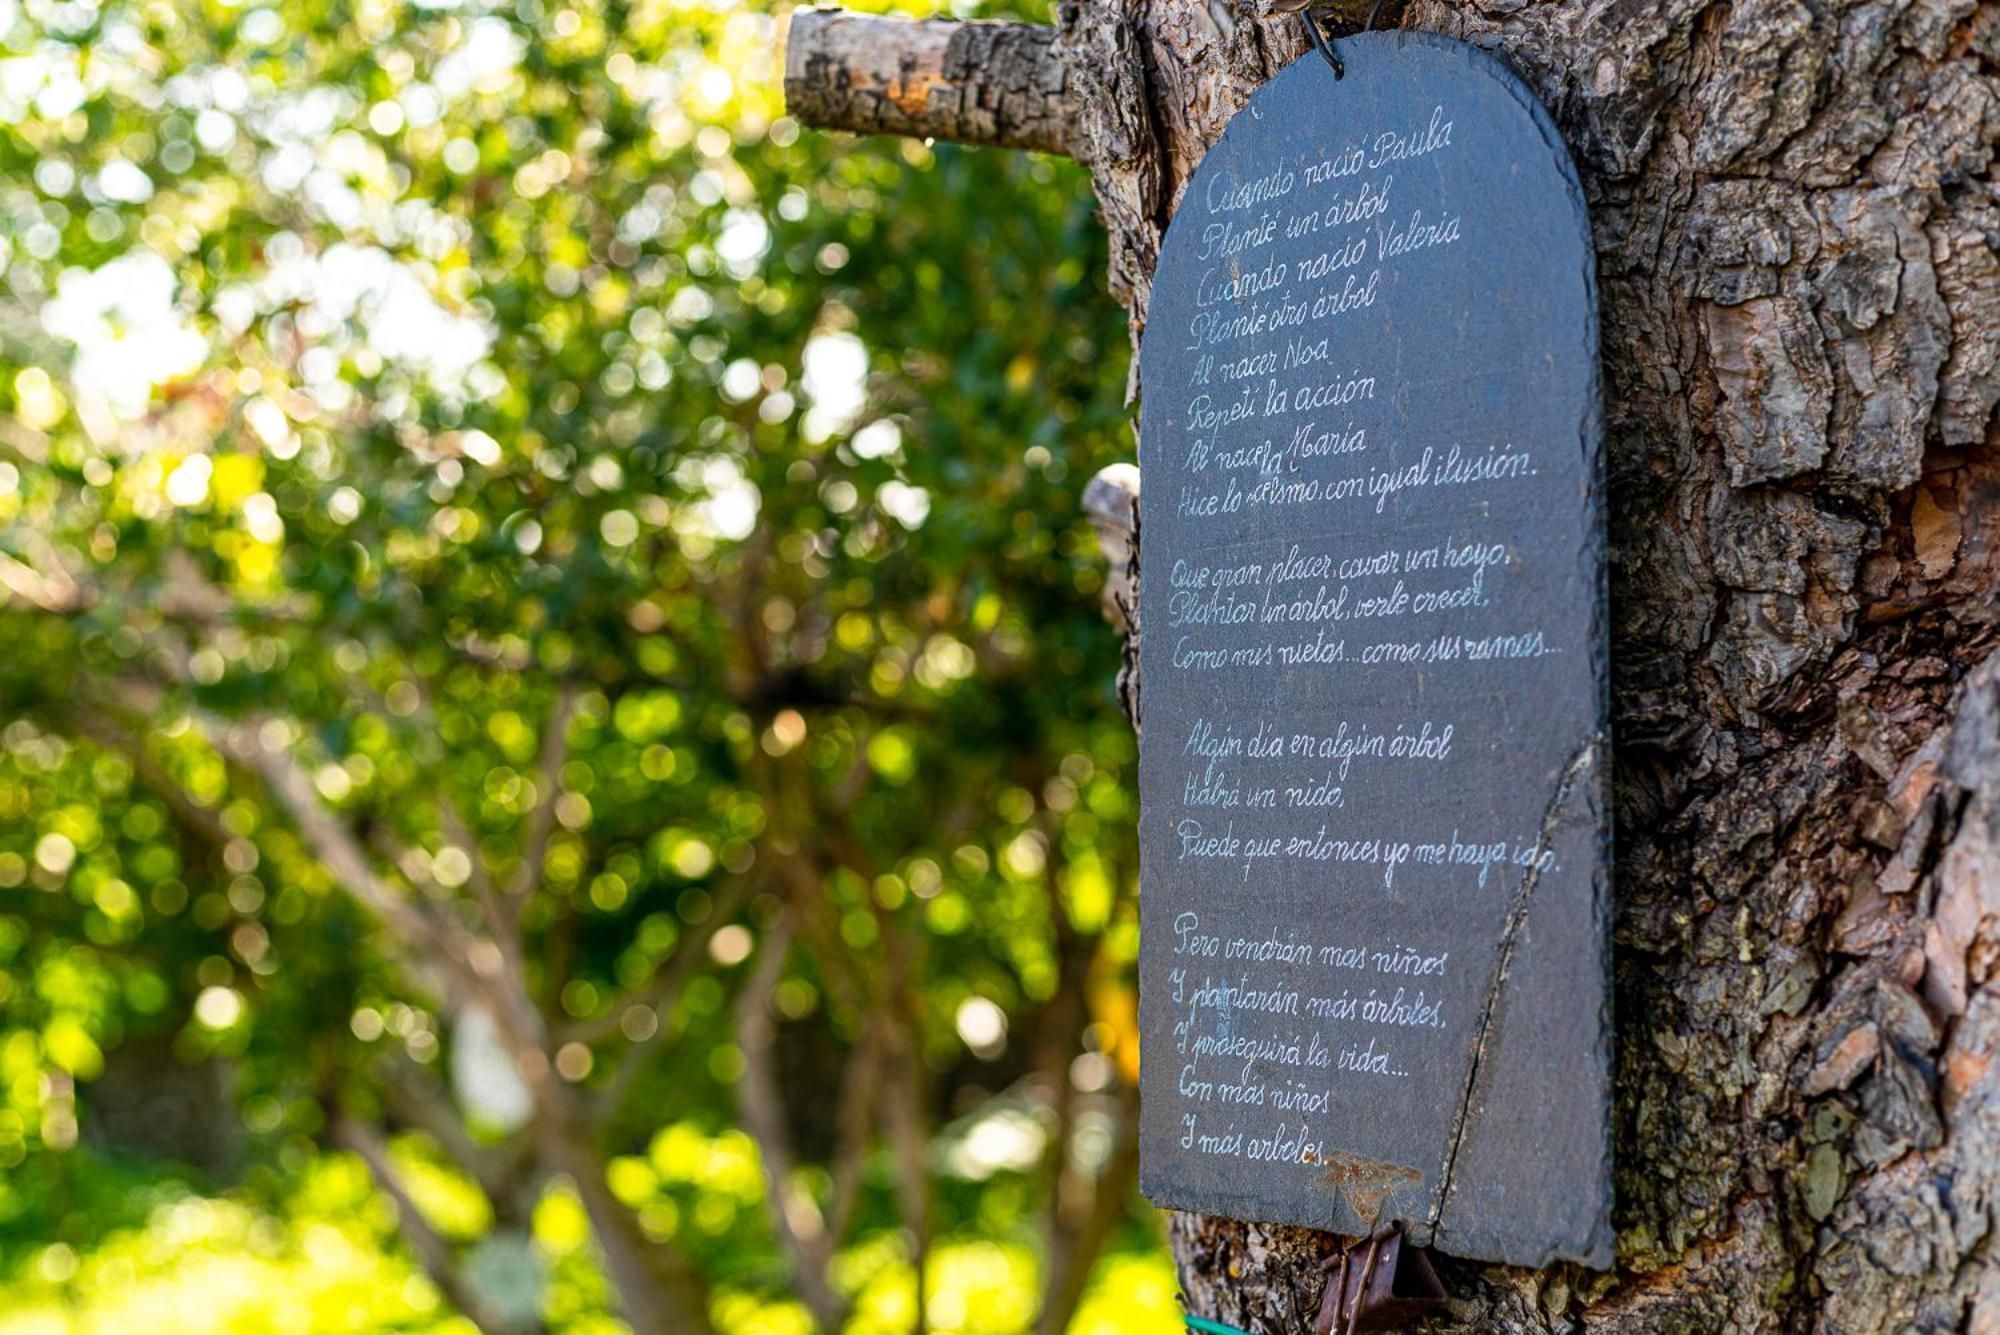 Cuando nació Paula
Planté un árbol
Cuando nació Valeria
Planté otro árbol
Al nacer Noa
Repetí la acción
Al nacer la María
Hice lo mismo, con igual ilusión.
Que gran placer, cavar un hoyo,
Plantar un árbol, verle crecer,
Como mis nietas... como sus ramas...
Algún día en algún árbol
Habrá un nido,
Puede que entonces yo me haya ido.
Pero vendrán mas niños
Y plantarán más árboles,
Y proseguirá la vida...
Con mas niños
Y más arboles.